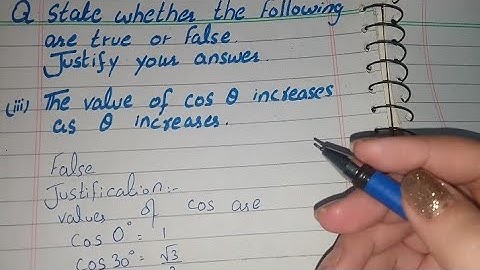 Q State whether the following
are true or false.
Justify your answer.
(iii) The value of cos θ increases
as θ increases.
False
Justification:-
values of cos are
cos 0° = 1
cos 30° = √3/2